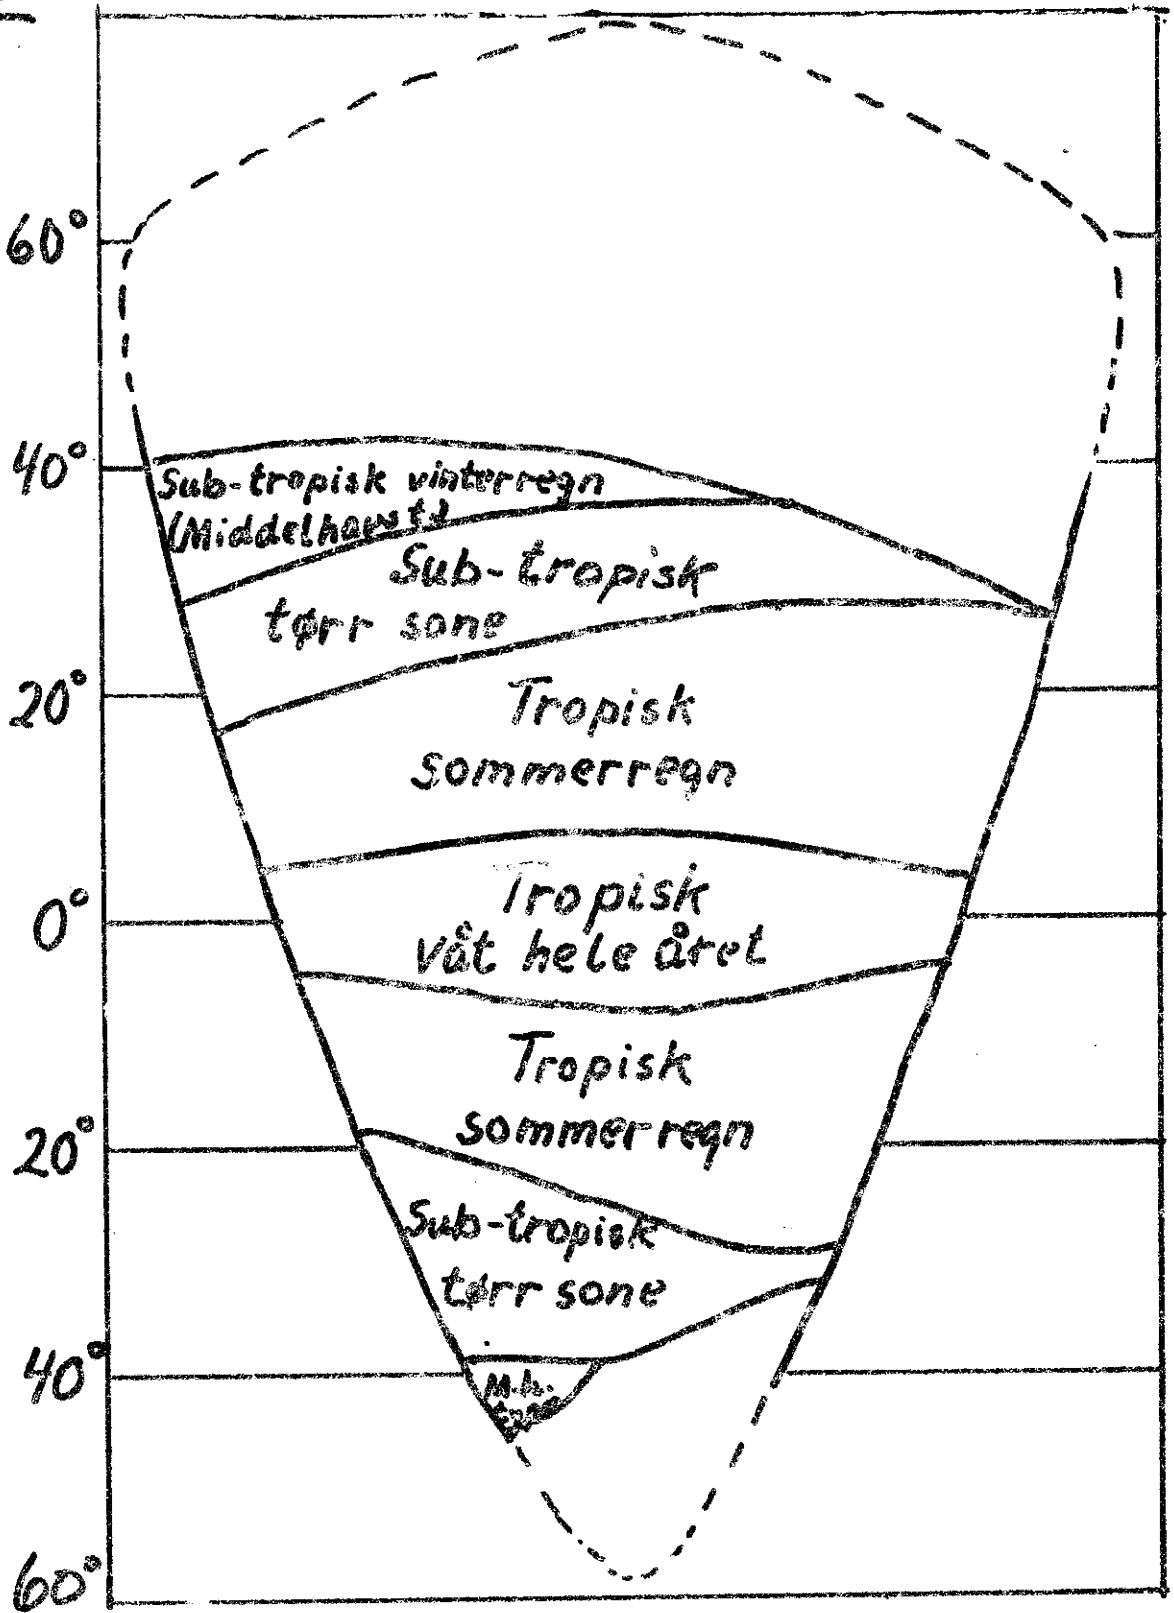 60°
40°
Sub-tropisk vinterregn
(Middelhavst.)
Sub-tropisk
tørr sone
20°
Tropisk
sommerregn
0°
Tropisk
våt hele året
Tropisk
sommerregn
20°
Sub-tropisk
tørr sone
40°
M.h.
60°